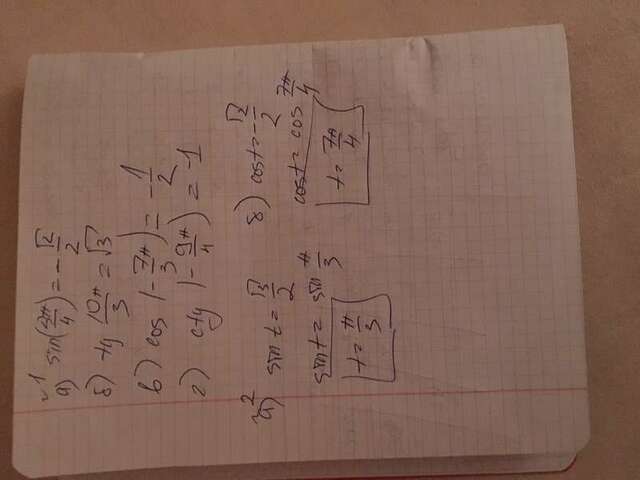 №1
а) sin(5π/4) = -√2/2
б) tg 10π/3 = √3
в) cos(-7π/3) = -1/2
г) ctg(-9π/4) = -1
№2
а) sin t = √3/2
sin t = sin π/3
t = π/3
б) cos t = -√2/2
cos t = cos 7π/4
t = 7π/4